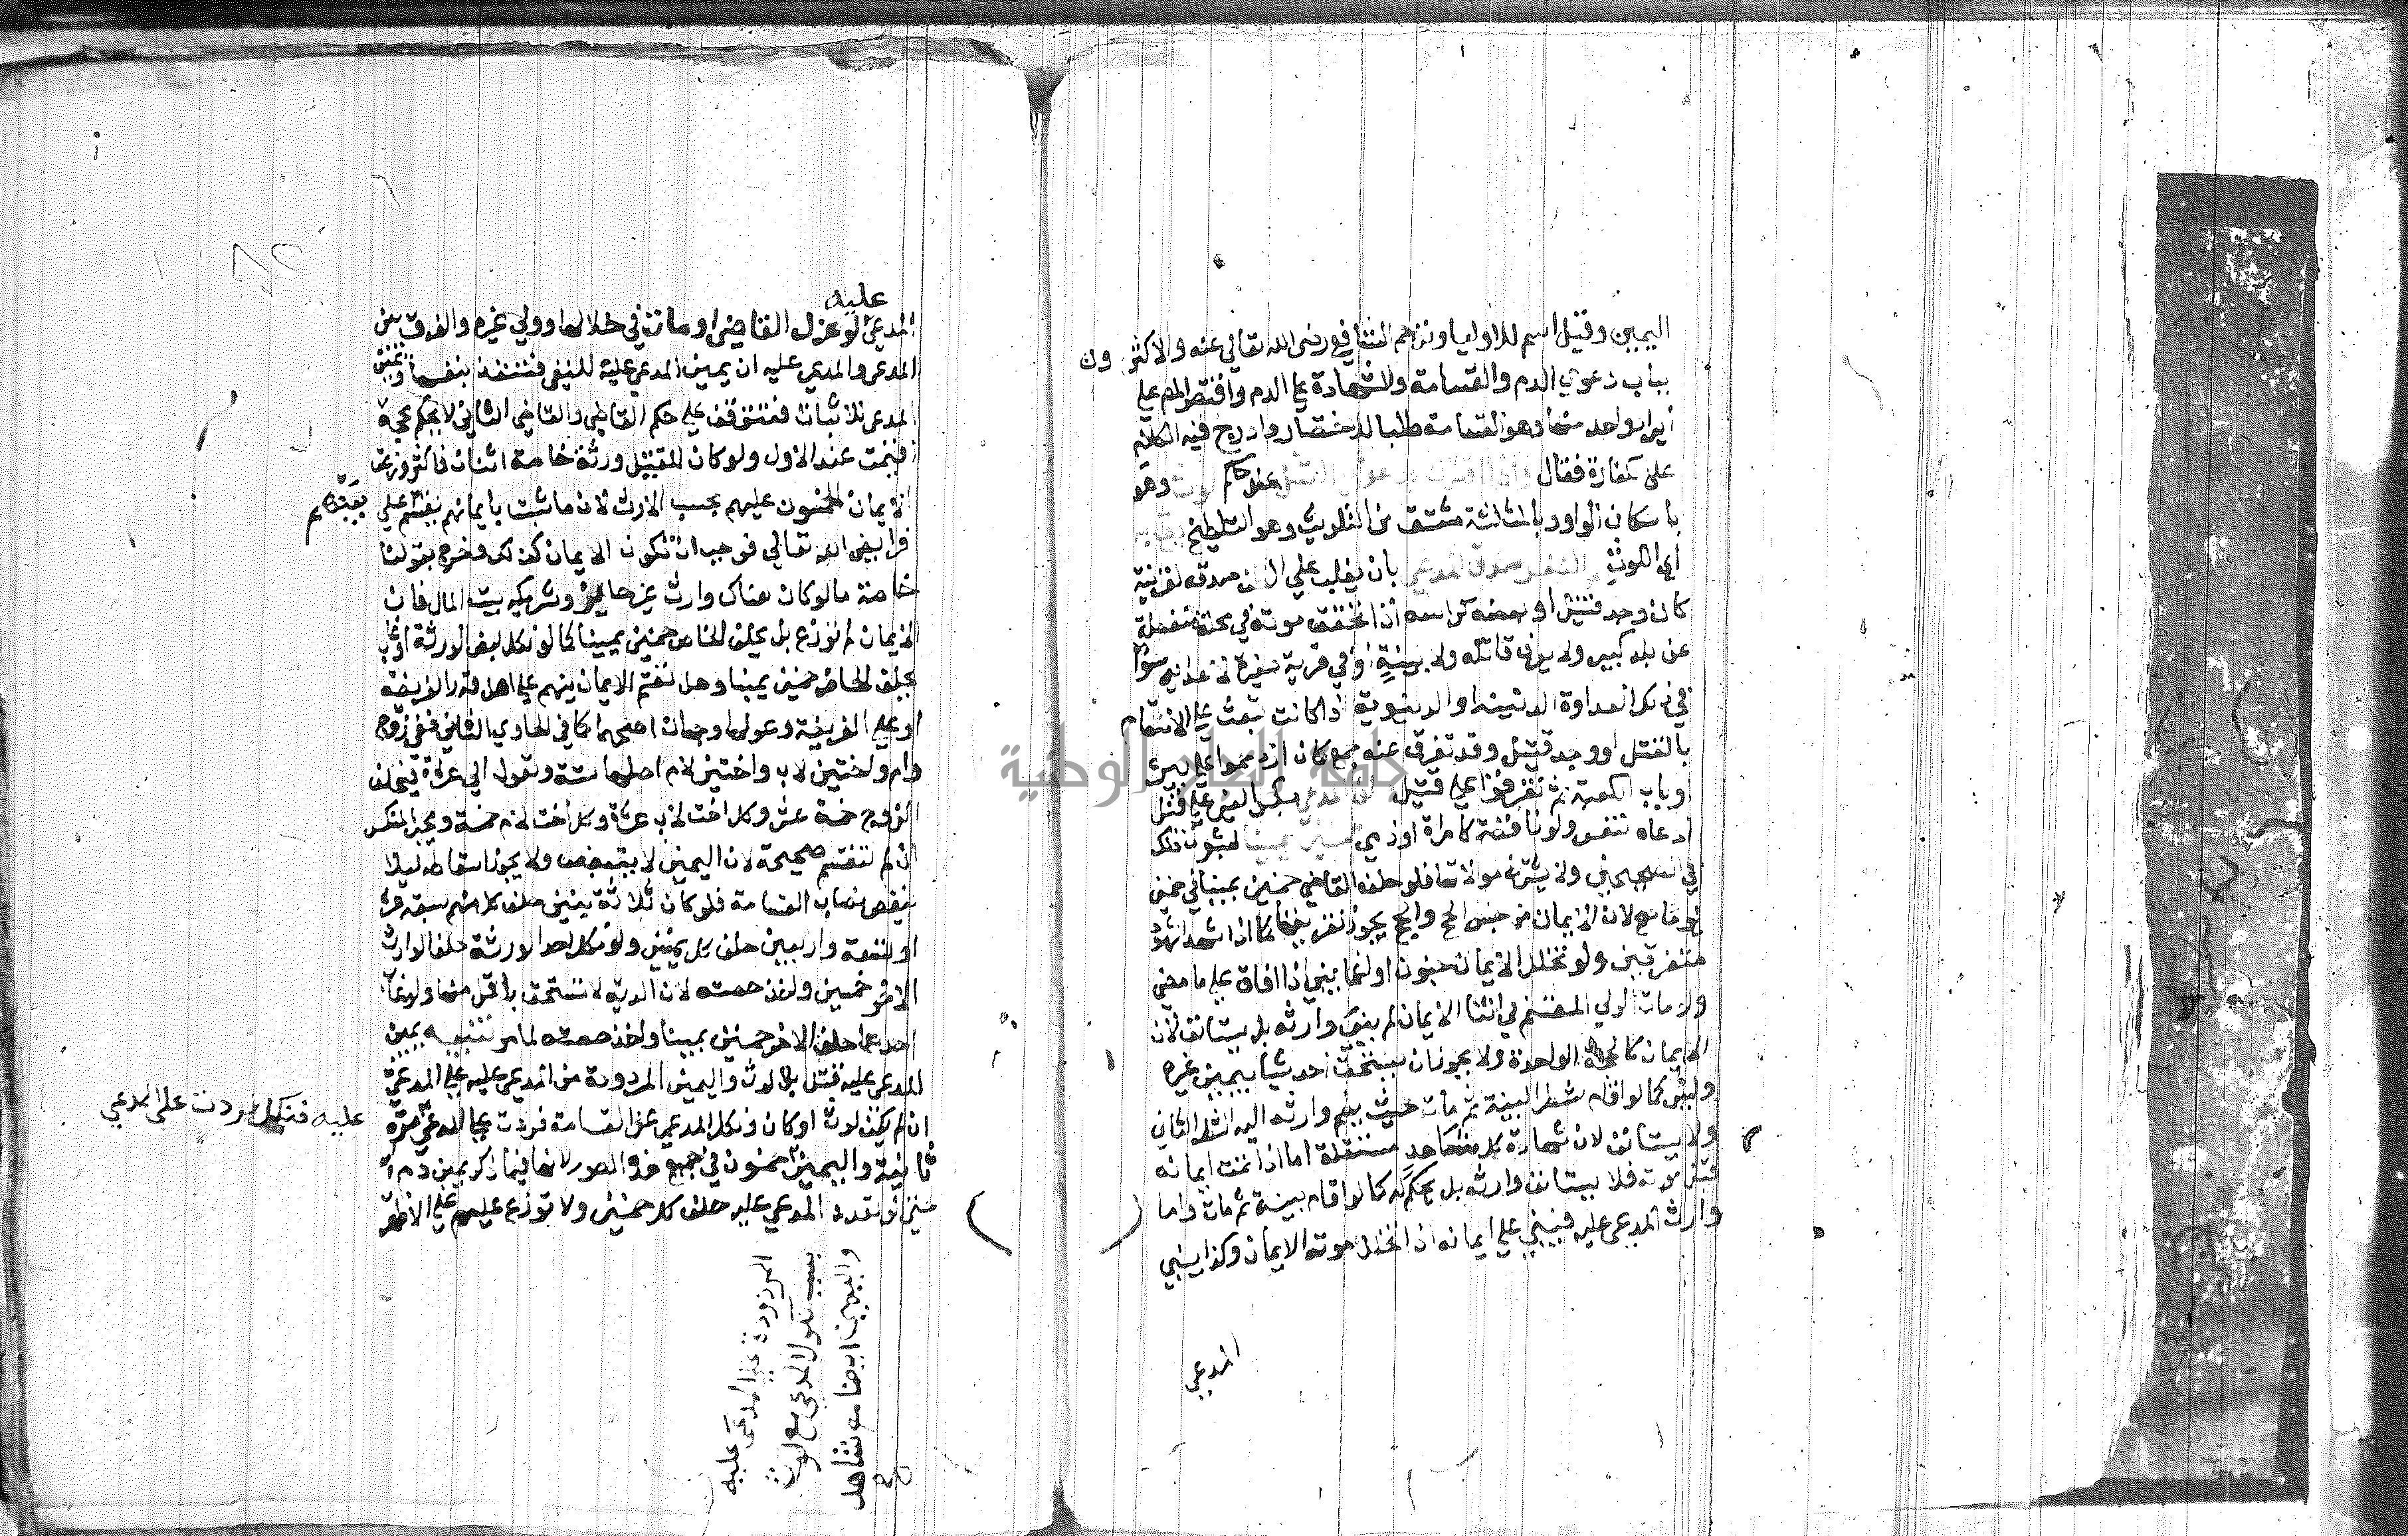 اليمين وقيل اسم للاوليا وترجم الشافعي رضى الله تعالي عنه والاكثرون
بباب دعوي الدم والقسامة والشهادة علي الدم واقتصر المص علي
ايراد واحد منها وهو القسامة طلبا للاختصار وادرج فيه الكلام
على كفارة فقال عند حاكم وهو
باسكان الواو وبالمثلثة مشتق من التلويث وهو التلطيخ
اي اللوث بان يغلب علي الظن صدقه بقرينة
كان وجد قتيل او بعضه كراسه اذا تحقق موته في محلة منفصلة
عن بلد كبير ولا يعرف قاتله ولا بينة او في قرية صغيرة لاعدائه سوا
في ذلك العداوة الدينية او الدنيوية اذا كانت تبعث علي الانتقام
بالقتل او وجد قتيل وقد تفرق عنه جمع كان ازدحموا علي بير
او باب الكعبة ثم تفرقوا علي قتيل علي قتل
ادعاه لنفس ولو ناقصة كامراة او ذمي لثبوت ذلك
في الصحيحين ولا يشترط موالاتها فلو حلفه القاضي خمسين يمينا في خمسين
يوما صح لان الايمان من جنس الحجج والحجج يجوز تفريقها كما اذا شهد الشهود
متفرقين ولو تخلل الايمان جنون او اغما بني اذا افاق علي ما مضي
ولو مات الولي المقسم في اثنا الايمان لم يبن وارثه بل يستانف لان
الايمان كالحجة الواحدة ولا يجوز ان يستحق احد شيا بيمين غيره
وليس كما لو اقام شطر البينة ثم مات حيث يضم وارثه اليه الشطر الثاني
ولا يستانف لان شهادة كل شاهد مستقلة اما اذا تمت ايمانه
قبل موته فلا يستانف وارثه بل يحكم له كما لو اقام بينة ثم مات واما
وارث المدعى عليه فيبني علي ايمانه اذا تخلل موته الايمان وكذا يبني
المدعي
عليه
المدعى لو عزل القاضي او مات في خلالها وولي غيره والفرق بين
المدعى والمدعي عليه ان يمين المدعي عليه للنفي فتنفذ بنفسها ويمين
المدعى للاثبات فتتوقف علي حكم القاضي والقاضي الثاني لا يحكم بحجة
اقيمت عند الاول ولو كان للقتيل ورثة خاصة اثنان فاكثر وزعت
الايمان الخمسون عليهم بحسب الارث لان ما ثبت بايمانهم يقسم علي
فرايض الله تعالي فوجب ان تكون الايمان كذلك وخرج بقولنا
خاصة ما لو كان هناك وارث غير حايز وشريكه بيت المال فان
الايمان لا توزع بل يحلف الخاص خمسين يمينا كما لو نكل بعض الورثة او غاب
يحلف الحاضر خمسين يمينا وهل تقسم الايمان بينهم علي اصل قدر الفريضة
او علي الفريضة وعولها وجهان اصحهما كما في الحاوي الثاني ففي زوج
وام واختين لاب واختين لام اصلها ستة وتعول الي عشرة فيحلف
الزوج خمسة عشر وكل اخت لاب عشرة وكل اخت لام خمسة ويجبر المنكسر
ان لم تنقسم صحيحة لان اليمين لا يتبعض ولا يجوز اسقاطه ليلا
ينقص نصاب القسامة فلو كان ثلاثة بنين حلف كل منهم سبعة عشر
او تسعة واربعين حلف كل يمينين ولو نكل احد الورثة حلف الوارث
الاخر خمسين واخذ حصته لان الدية لا تستحق باقل منها ولو غاب
احدهما حلف الاخر خمسين يمينا واخذ حصته لما مر تنبيه يمين
المدعى عليه قتل بلا لوث واليمين المردودة من المدعي عليه علي المدعي
عليه فنكل فردت على المدعي
ان لم يكن لوث او كان ونكل المدعي عن القسامة فردت علي المدعى مرة
ثانية واليمين خمسون في جميع هذه الصور لانها فيما ذكر يمين دم
حتى لو تعدد المدعي عليه حلف كل خمسين ولا توزع عليهم علي الاظهر
المردودة علي المدعى عليه
بسبب نكول المدعي مع لوث
واليمين ايضا مع شاهد